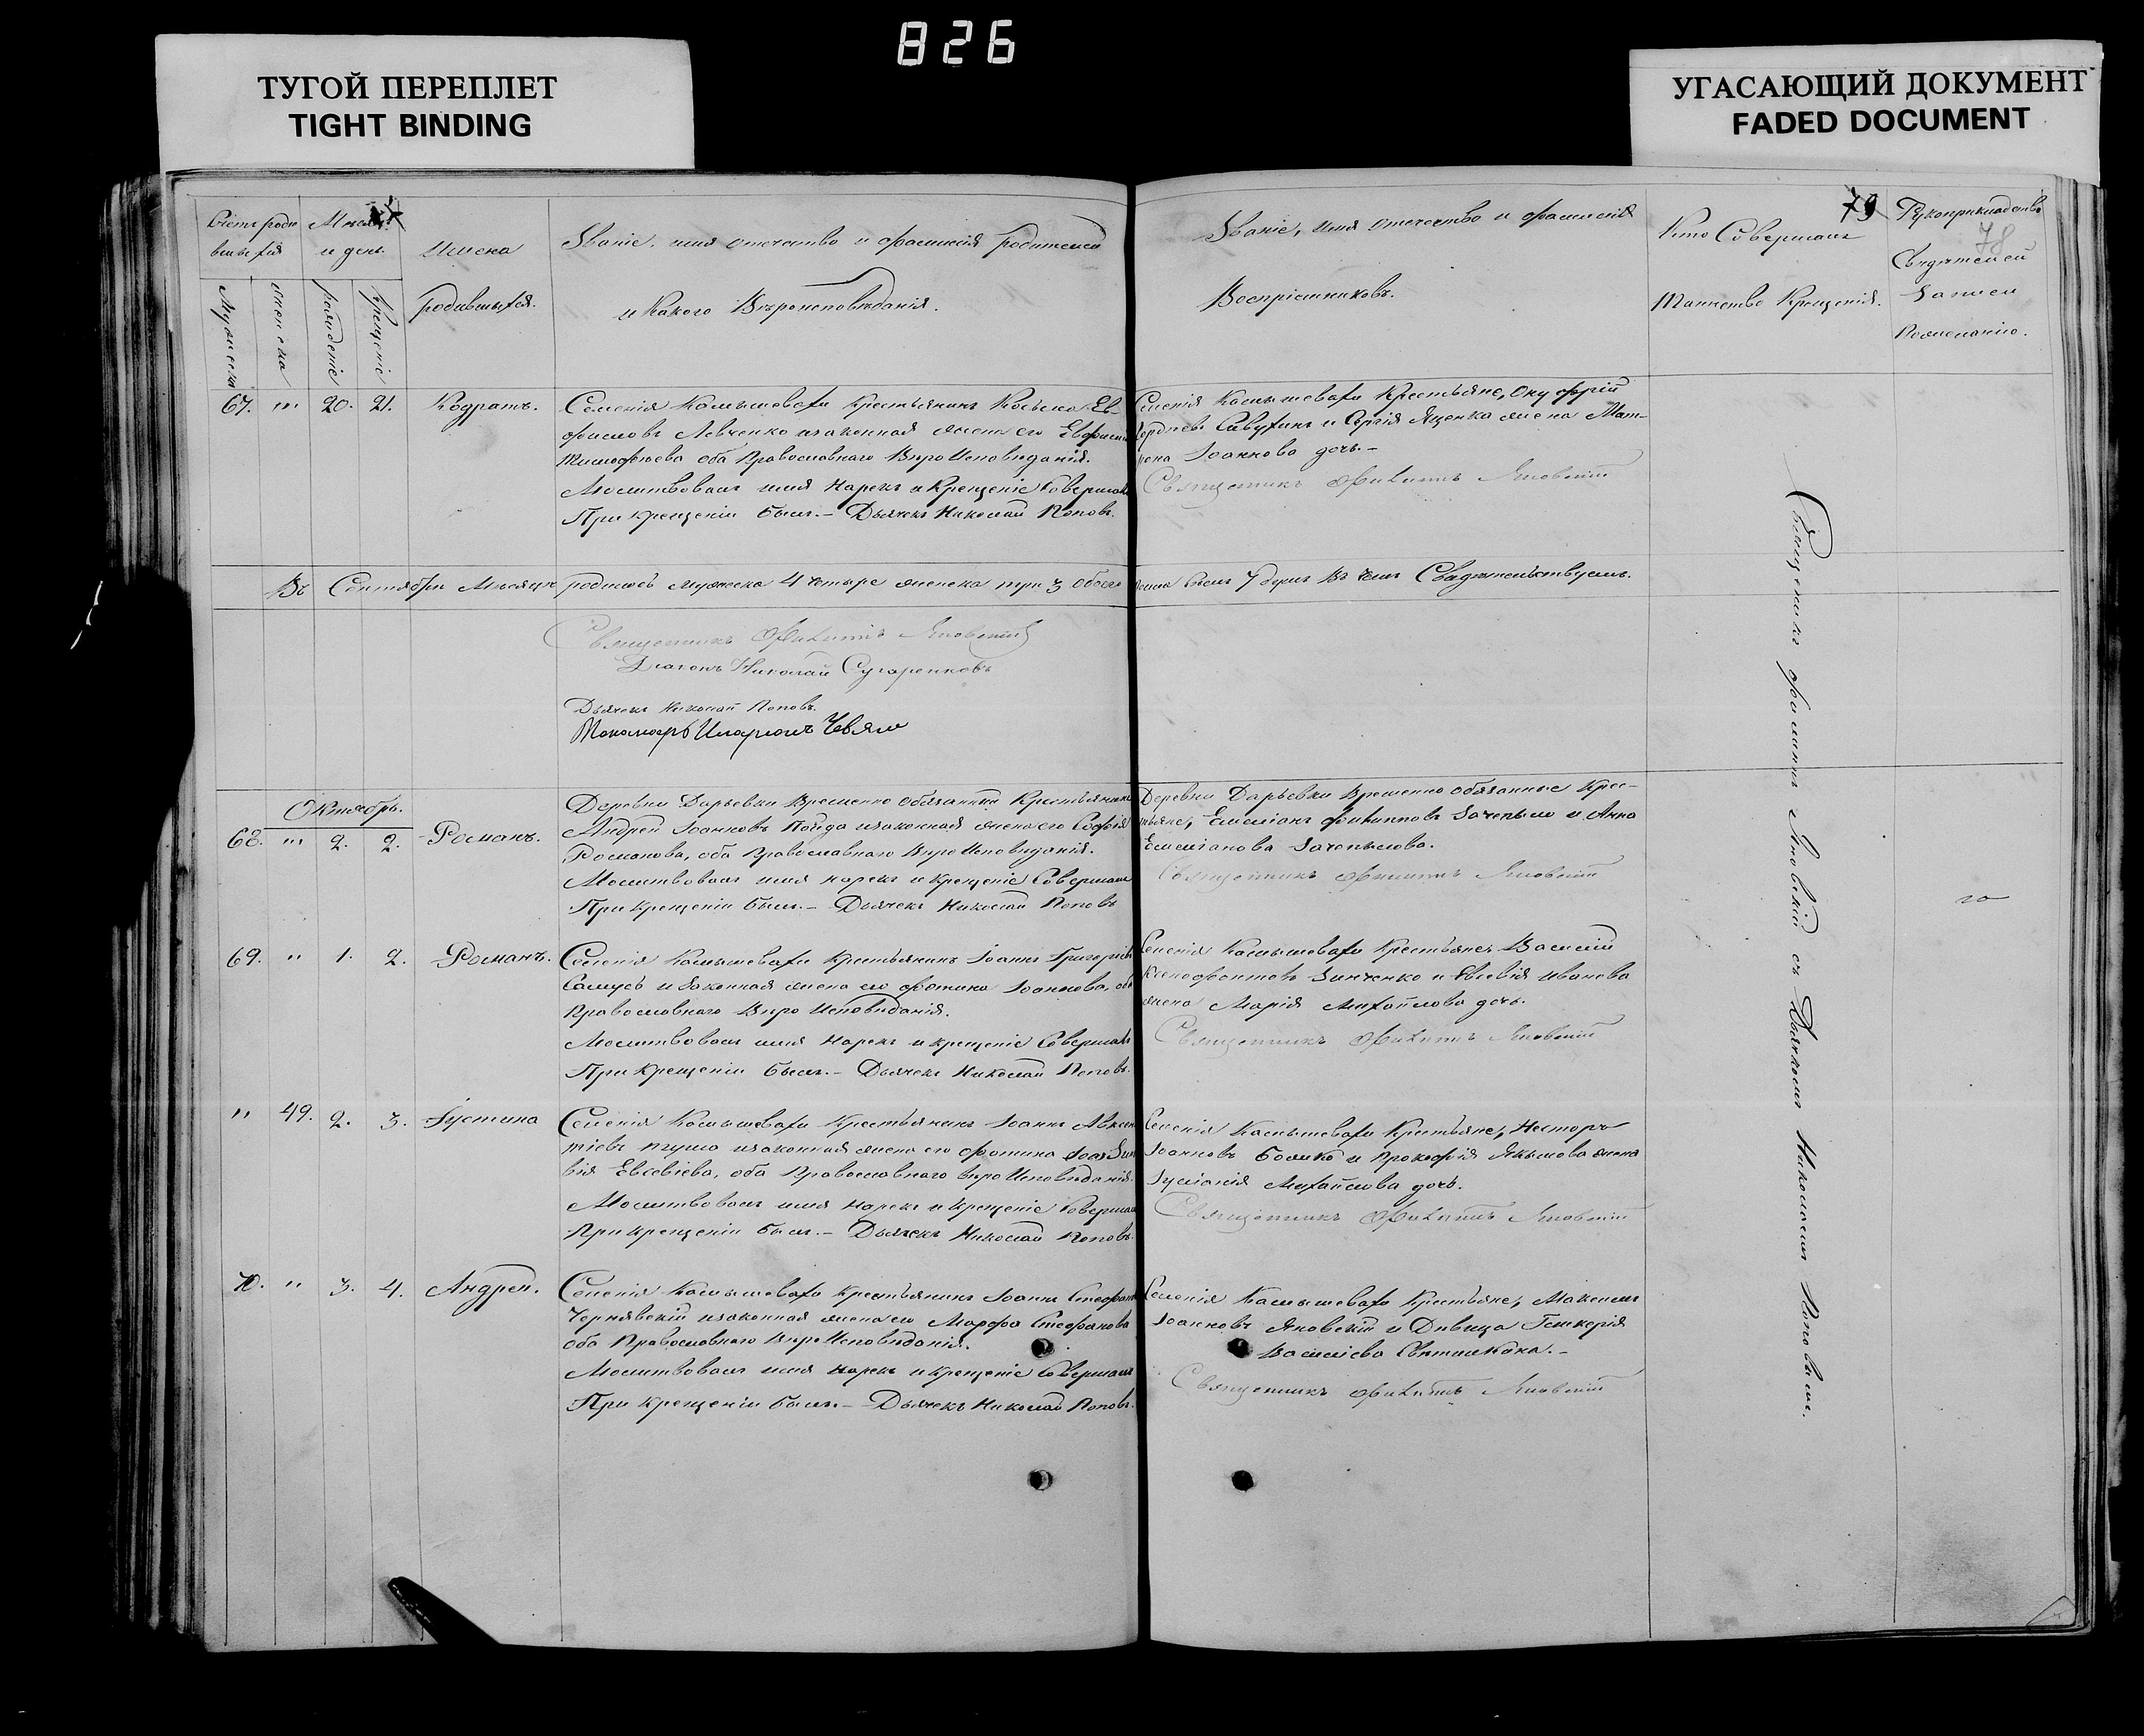 826
ТУГОЙ ПЕРЕПЛЕТ
TIGHT BINDING
УГАСАЮЩИЙ ДОКУМЕНТ
FADED DOCUMENT
Счетъ роди
вшихся
Мужеска
женска
Месяцъ
и день
рожденіе
крещеніе
Имена
родившихся.
Званіе, имя отечество и фамилія родителей
и Какого Вѣроисповѣданія.
Званіе, имя отечество и фамилія
Воспріемниковъ.
79
Кто Совершалъ
Таинство Крещенія.
Рукоприкладство
78
Свидѣтелей
Записи
По желанію.
67. "' 20. 21. Кодратъ.
Селенія Камышеватхи Крестьянинъ Косьма Ев-
фимовъ Левченко изаконная жена его Евфимія
Тимофѣева оба Православнаго ВѣроИсповѣданія.
Молитвовалъ имя Нарекъ и Крещеніе Совершалъ
При крещеніи былъ.– Дьячекъ Николай Поповъ.
Селенія Камышевахи Крестьяне, Онуфрій
Савухинъ и Сергія Яценка жена Мат-
рона Іоаннова дочь.–
Священникъ Филиппъ Яновскій
Въ Сентябрѣ Мѣсяцѣ родилось мужеска 4 четыре женска три 3 обоего
пола всѣхъ 7 душъ Въ чемъ Свидѣтельствуемъ.
Священникъ Филиппъ Яновскій
Діаконъ Николай Сухаренковъ
Дьячекъ Николай Поповъ.
Пономарь Иларіонъ
Октябрь.
68. "' 2. 2. Романъ.
Деревни Дарьевки Временно обязанный Крестьянинъ
Андрей Іоанновъ Пойда изаконная жена его Софія
Романова, оба Православнаго ВѣроИсповѣданія.
Молитвовалъ имя нарекъ и крещеніе Совершалъ
При Крещеніи былъ.– Дьячекъ Николай Поповъ
Деревни Дарьевки Временно обязанные Крес-
тьяне, Емеліянъ Филипповъ Зачепыло и Анна
Емеліанова Зачепылова.
Священникъ Филиппъ Яновскій
69. " 1. 2. Романъ.
Селенія Камышевахи Крестьянинъ Іоаннъ Григоріевъ
Самусь и Законная жена его Фотина Іоаннова, оба
Православнаго Вѣро Исповѣданія.
Молитвовалъ имя Нарекъ и крещеніе Совершалъ
При Крещеніи былъ.– Дьячекъ Николай Поповъ.
Селенія Камышевахи Крестьяне, Василій
Ксенофонтовъ Зинченко и Евсевія Иванова
жена Марія Михайлова дочь.
Священникъ Филиппъ Яновскій
" 49. 2. 3. Іустина
Селенія Камышевахи Крестьянинъ Іоаннъ Авксен
тіевъ изаконная жена его Фотина
вія Евсевіева, оба Православнаго вѣроИсповѣданія.
Молитвовалъ имя Нарекъ и крещеніе Совершалъ
При крещеніи былъ.– Дьячекъ Николай Поповъ.
Селенія Камышевахи Крестьяне, Несторъ
Іоанновъ Бошко и Прокофія Якымова жена
Іуліанія Михайлова дочь.
Священникъ Филиппъ Яновскій
70. " 3. 4. Андрей.
Селенія Камышевахи Крестьянинъ Іоаннъ Стефановъ
Чернявскій изаконная жена его Марфа Стефанова
оба Православнаго ВѣроИсповѣданія.
Молитвовалъ имя нарекъ и крещеніе Совершалъ
При Крещеніи былъ.– Дьячекъ Николай Поповъ.
Селенія Камышевахи Крестьяне, Максимъ
Іоанновъ Яновскій и Дѣвица Гликерія
Василіева.–
Священникъ Филиппъ Яновскій
Священникъ Филиппъ Яновскій съ Дьячкомъ Николаемъ Поповымъ.